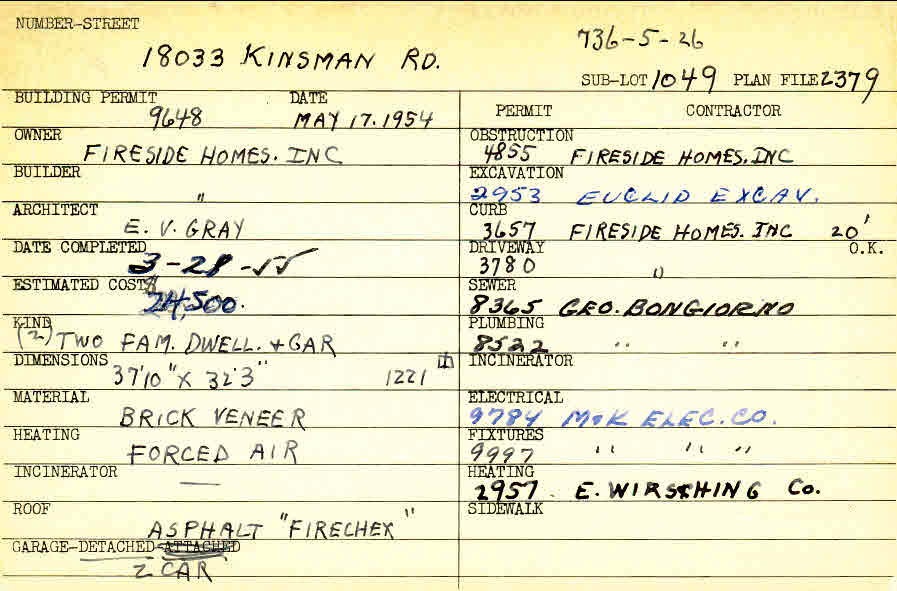 NUMBER-STREET
18033 KINSMAN RD.
736-5-26
SUB-LOT 1049 PLAN FILE 2379
BUILDING PERMIT DATE
9648 MAY 17. 1954
OWNER
FIRESIDE HOMES. INC
BUILDER
"
ARCHITECT
E. V. GRAY
DATE COMPLETED
3-28-55
ESTIMATED COST $
24,500.
KIND
(2) TWO FAM. DWELL. + GAR
DIMENSIONS
37'10" X 32'3" 1221
MATERIAL
BRICK VENEER
HEATING
FORCED AIR
INCINERATOR
—
ROOF
ASPHALT "FIRECHEX"
GARAGE-DETACHED-ATTACHED
2 CAR
PERMIT CONTRACTOR
OBSTRUCTION
4855 FIRESIDE HOMES. INC
EXCAVATION
2953 EUCLID EXCAV.
CURB
3657 FIRESIDE HOMES. INC 20'
DRIVEWAY O.K.
3780 "
SEWER
8365 GEO. BONGIORNO
PLUMBING
8522 " "
INCINERATOR
ELECTRICAL
9784 M&K ELEC. CO.
FIXTURES
9997 " " "
HEATING
2957 E. WIRSCHING Co.
SIDEWALK